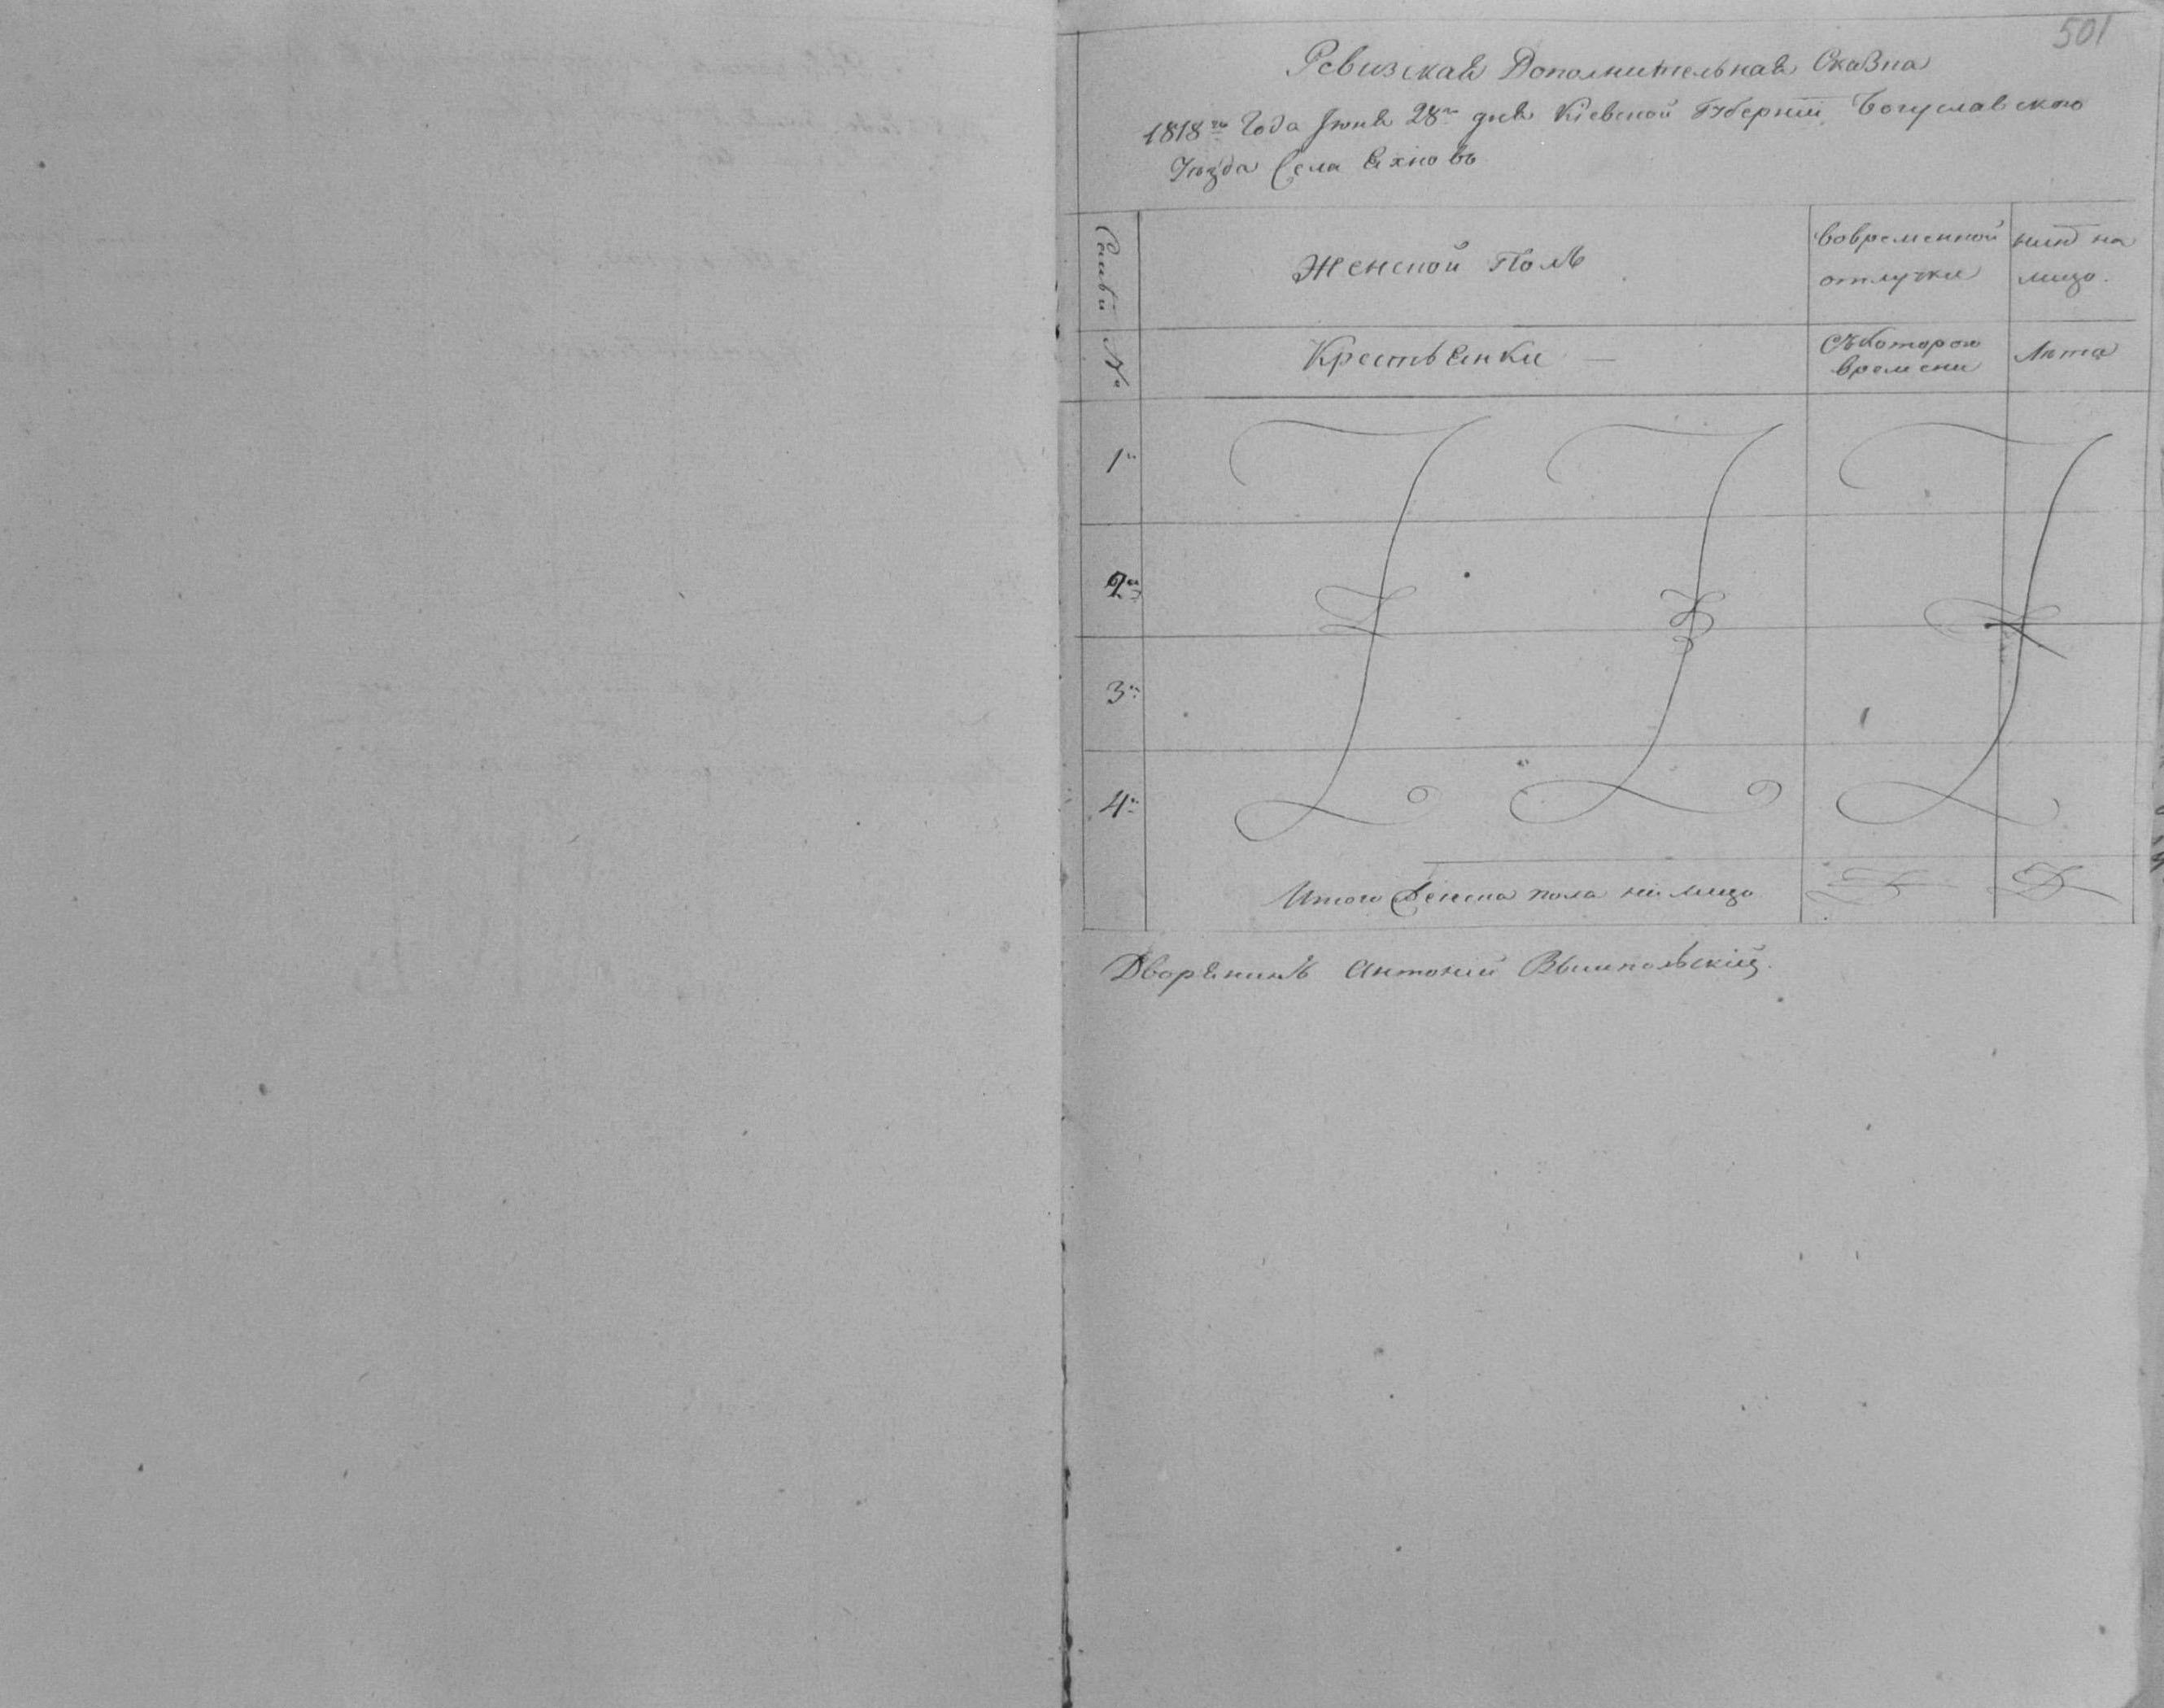 501
Ревизская Дополнительная Сказка
1818го Года Июня 28го дня Кіевской Губерніи Богуславского
Уѣзда Села Яхновъ
Семьи №
Женской Полъ
во временной отлучки
нынѣ на лицо.
Крестьянки —
Съ котораго времени
Лѣта
1й
2й
3й
4й
Итого Женска пола на лицо
Дворянинъ Антоній Вымпольскій